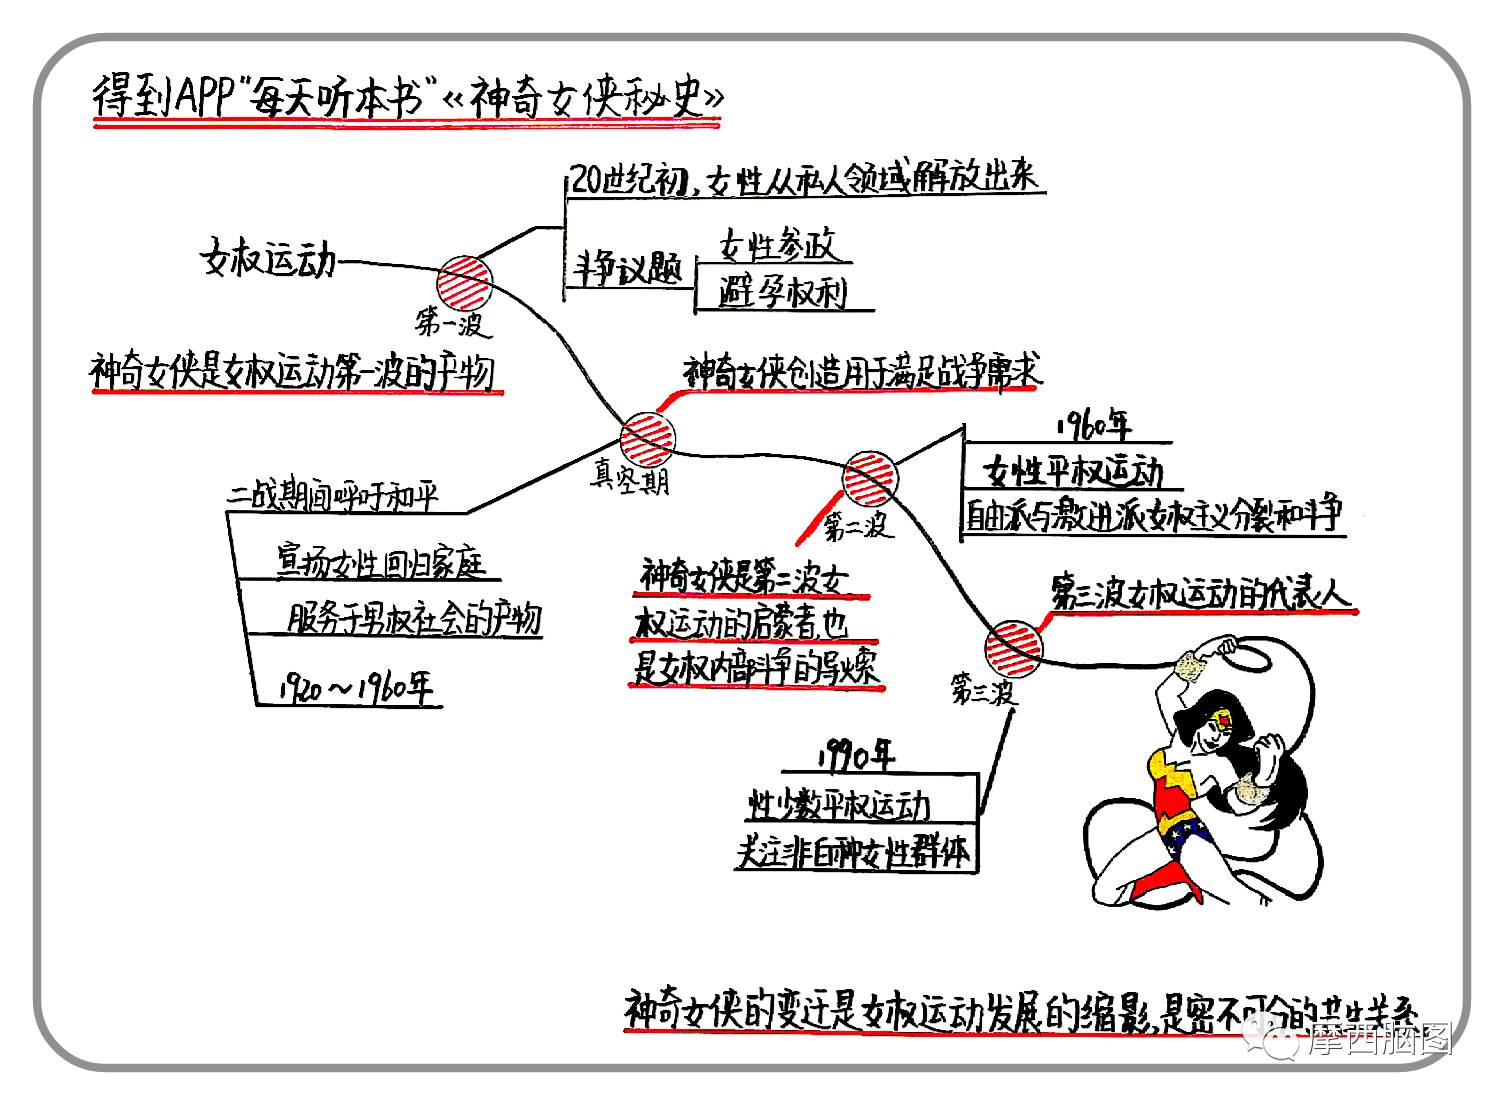 得到APP"每天听本书"《神奇女侠秘史》
20世纪初,女性从私人领域解放出来
女权运动
斗争议题
女性参政
避孕权利
第一波
神奇女侠是女权运动第一波的产物
神奇女侠创造用于满足战争需求
真空期
二战期间呼吁和平
宣扬女性回归家庭
服务于男权社会的产物
1920~1960年
1960年
女性平权运动
自由派与激进派女权主义分裂和斗争
第二波
神奇女侠是第二波女
权运动的启蒙者,也
是女权内部斗争的导火索
第三波女权运动的代表人
第三波
1990年
性少数平权运动
关注非白种女性群体
神奇女侠的变迁是女权运动发展的缩影,是密不可分的共生关系
摩西脑图